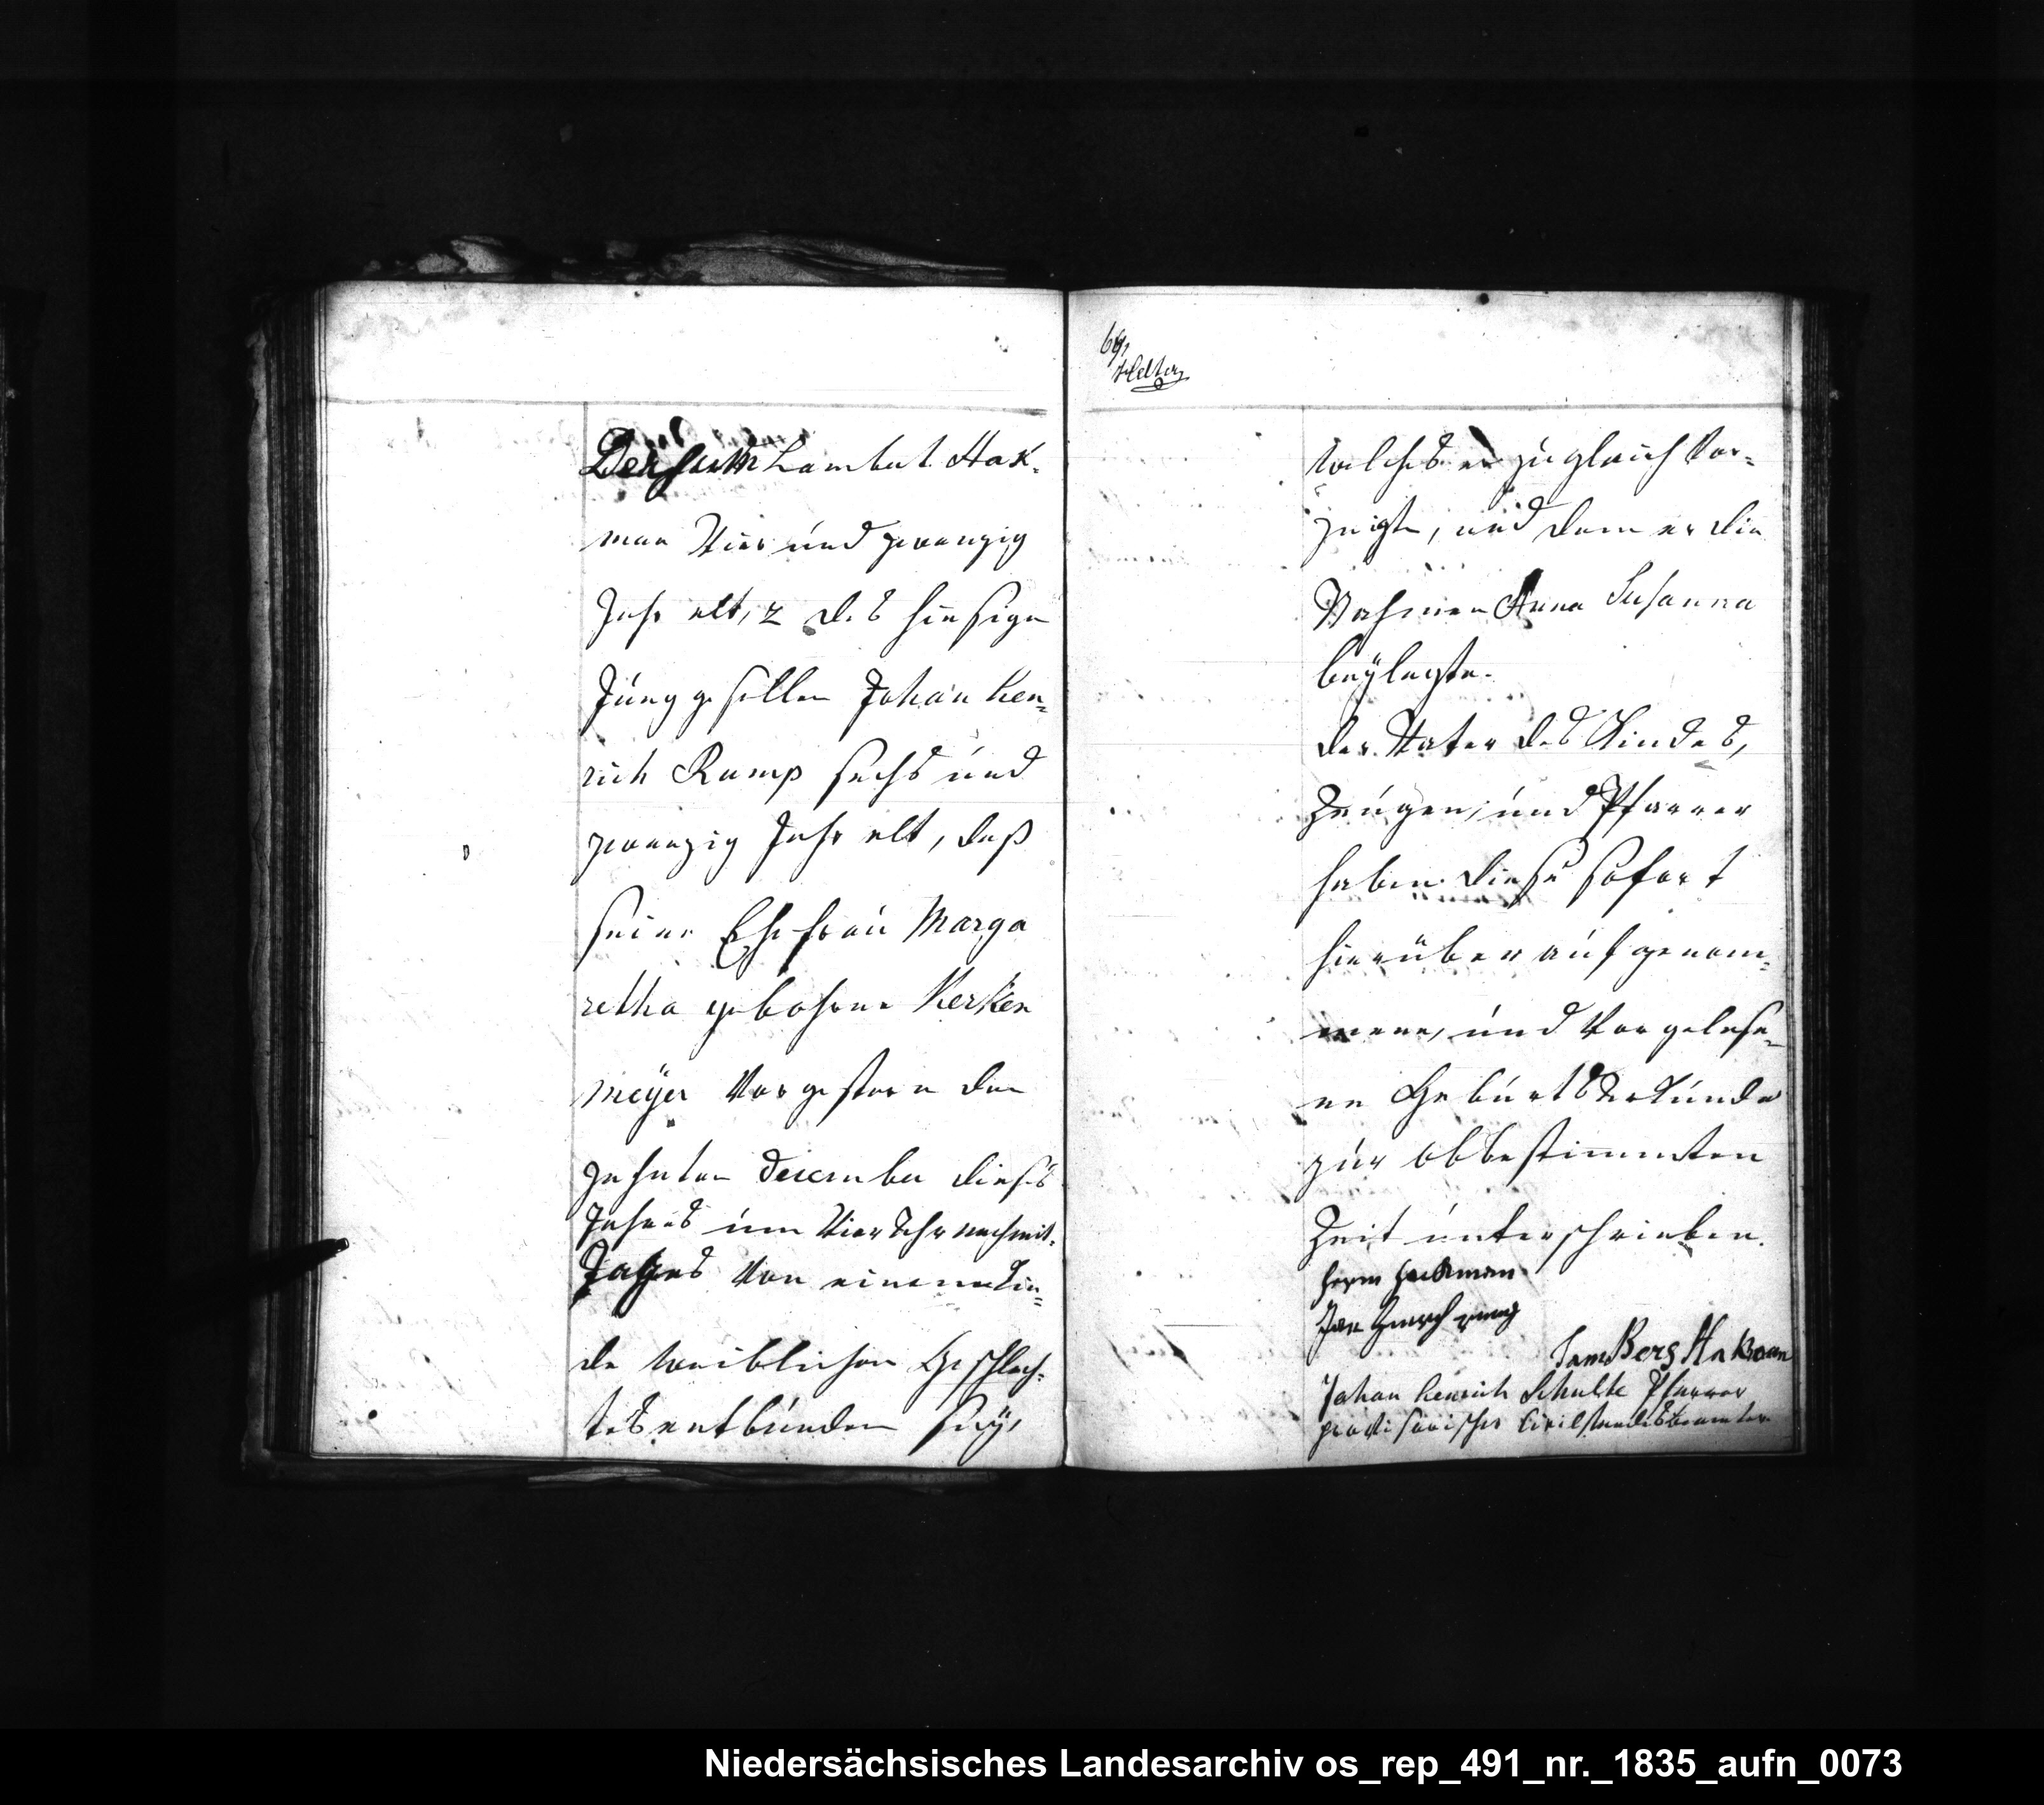 Dersum Lambert Hak-
man Vier und zwanzig
Jahr alt, 2 des hiesigen
Junggesellen Johan Hen=
rich Ramp sechs und
zwanzig Jahr alt, daß
seine Ehefrau Marga
retha gebohrne Kerken
meÿer Vorgestern den
zehnten December dieses
Jahres um Vier Uhr nachmit-
Tages Von einem Kin=
de weiblichen Geschlech-
tes entbunden seÿ,
69,
welches er zugleich Vor=
zeigte, und dem er die
Nahmen Anna Susanna
beÿlegte.
der Vater des Kindes,
Zeugen, und Pfarrer
haben diese sofort
hierüber aufgenom=
mene, und Vorgelese=
ne Geburts Urkunde
zur obbestimmten
Zeit unterschrieben.
Herm Hackman
Jan
Lamberg Hakman
Johan Henrich Schulte Pfarrer
provisorischer Civilstandsbeamter
Niedersächsisches Landesarchiv os_rep_491_nr._1835_aufn_0073